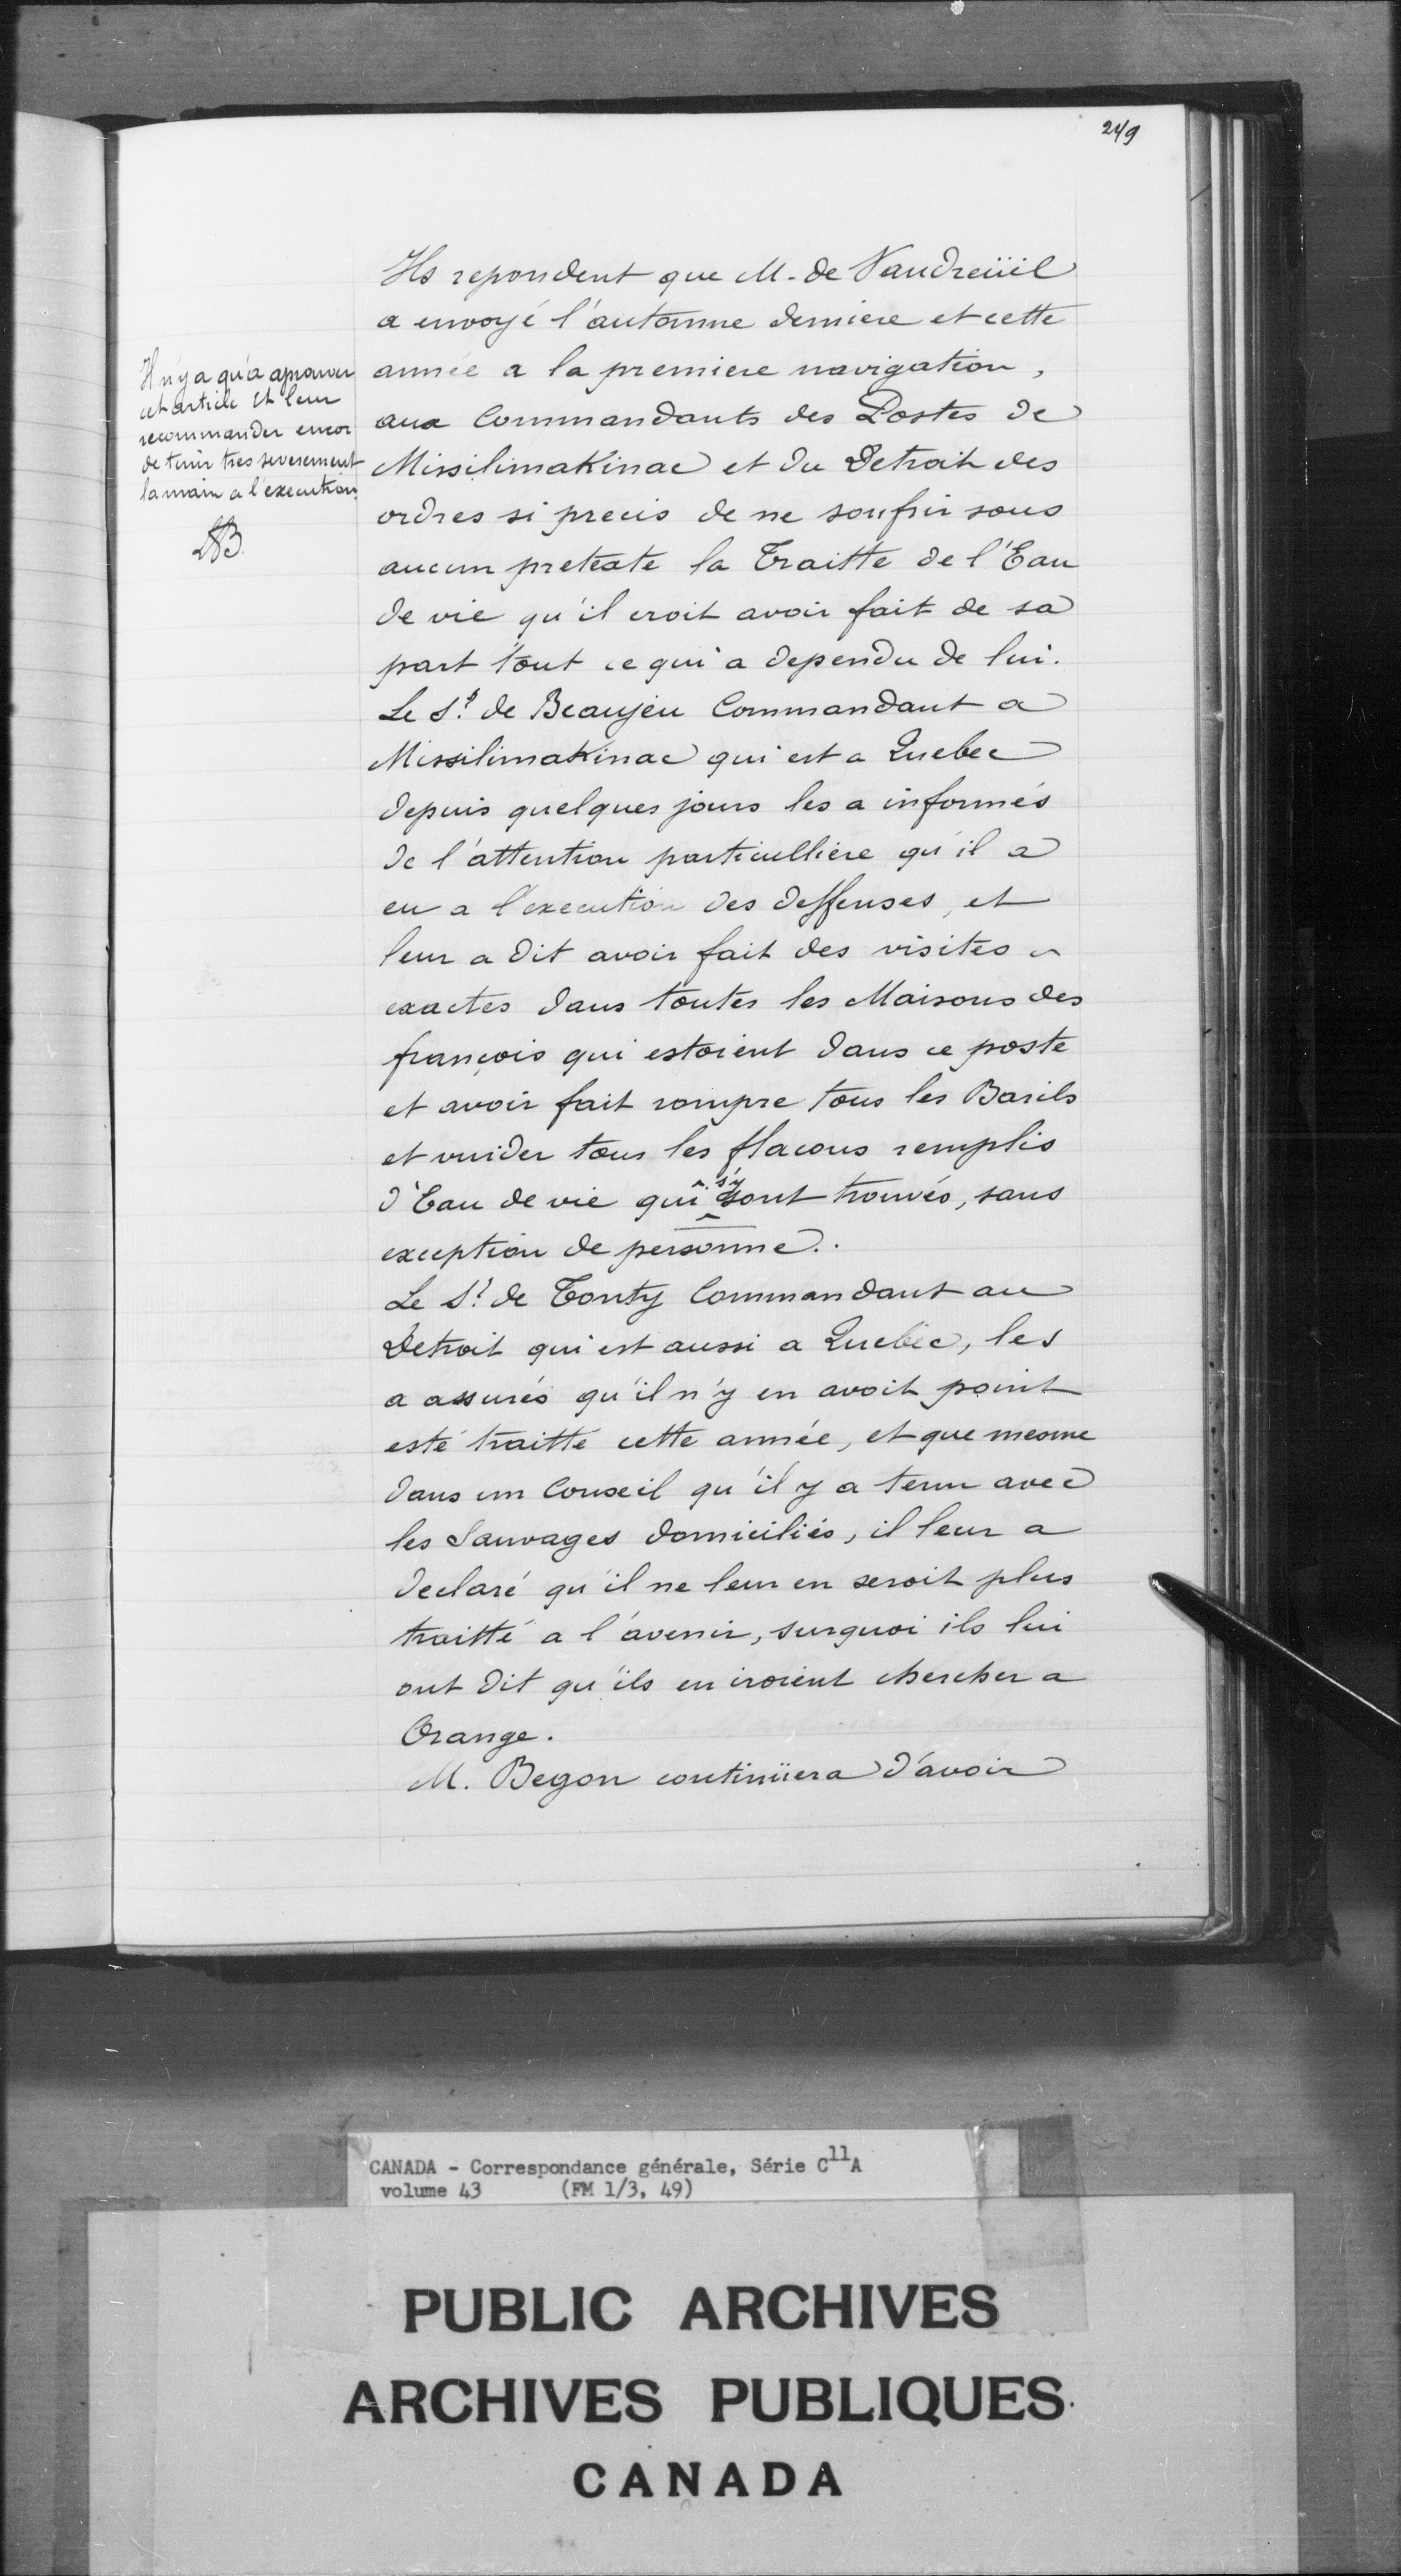 249
Ils repondent que M. de Vaudreüil
a envoyé l'automne derniere et cette
année a la premiere navigation,
aux Commandants des Postes de
Missilimakinac et du Detroit des
ordres si precis de ne soufrir sous
aucun pretexte la Traitte de l'Eau
de vie qu'il croit avoir fait de sa
part tout ce qui a dependu de lui.
Le Sr. de Beaujeu Commandant a
Missilimakinac qui est a Quebec
depuis quelques jours les a informés
de l'attention particulliere qu'il a
eu a l'execution des deffenses, et
leur a dit avoir fait des visites
exactes dans toutes les Maisons des
françois qui estoient dans ce poste
et avoir fait rompre tous les Barils
et vuider tous les flacons remplis
d'Eau de vie qui s'y sont trouvés, sans
exception de personne.
Le Sr. de Tonty Commandant au
Detroit qui est aussi a Quebec, les
a assurés qu'il n'y en avoit point
esté traitté cette année, et que mesme
dans un Conseil qu'il y a tenu avec
les Sauvages domiciliés, il leur a
declaré qu'il ne leur en seroit plus
traitté a l'avenir, surquoi ils lui
ont dit qu'ils en iroient chercher a
Orange.
M. Begon continüera d'avoir
Il n'y a qu'a aprouver
cet article et leur
recommander encor
de tenir tres severement
la main a l'execution
CANADA - Correspondance générale, Série C11A
volume 43 (FM 1/3, 49)
PUBLIC ARCHIVES
ARCHIVES PUBLIQUES
CANADA